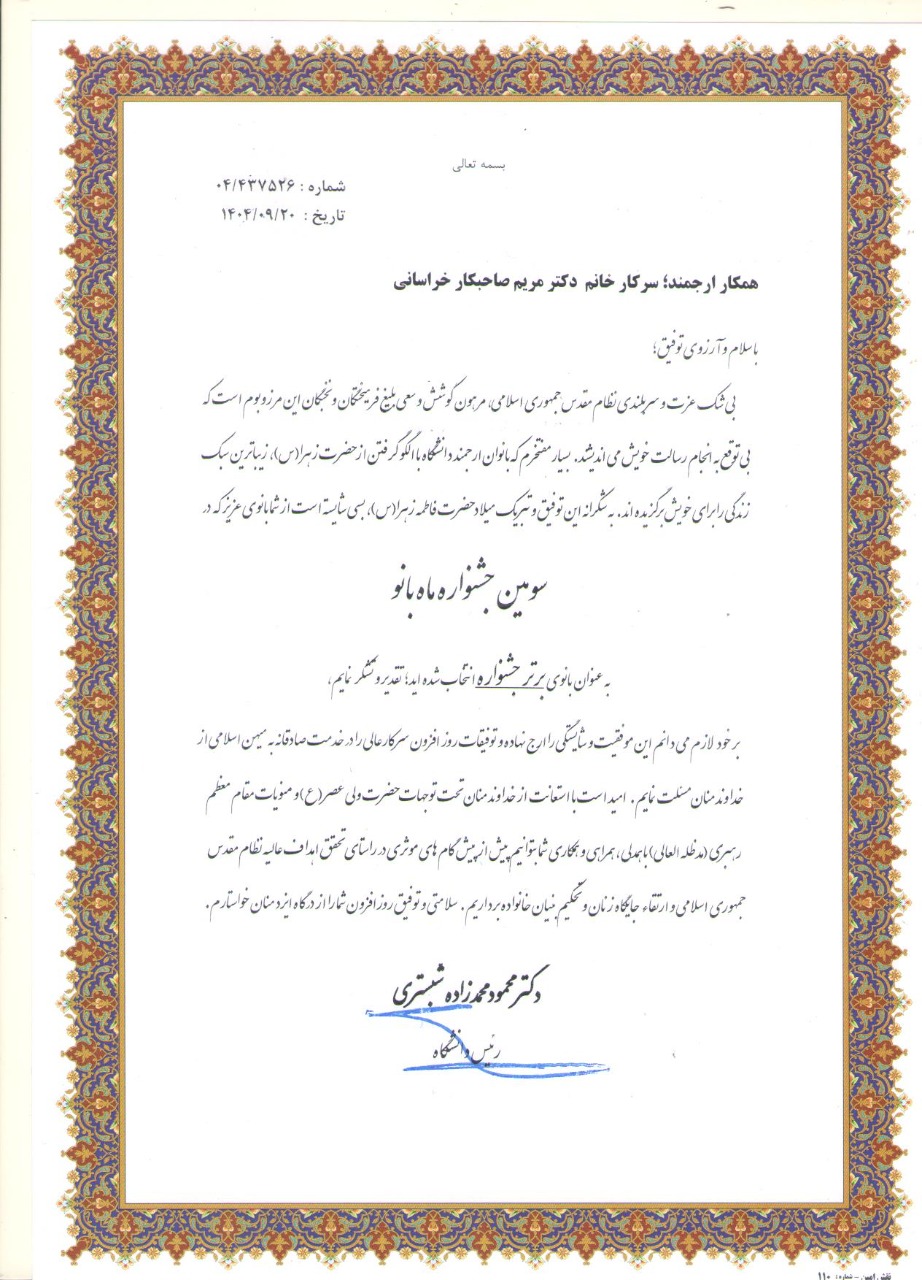 بسمه تعالی
شماره : ۰۴/۴۳۷۵۲۶
تاریخ : ۱۴۰۴/۰۹/۲۰
همکار ارجمند؛ سرکار خانم دکتر مریم صاحبکار خراسانی
با سلام و آرزوی توفیق؛
بی شک عزت و سربلندی نظام مقدس جمهوری اسلامی، مرهون کوشش و سعی بلیغ فرهیختگان و نخبگان این مرز و بوم است که
بی توقع به انجام رسالت خویش می اندیشند. بسیار مفتخرم که بانوان ارجمند دانشگاه با الگو گرفتن از حضرت زهرا(س)، زیباترین سبک
زندگی را برای خویش برگزیده اند. به شکرانه این توفیق و تبریک میلاد حضرت فاطمه زهرا(س)، بسی شایسته است از شما بانوی عزیز که در
سومین جشنواره ماه بانو
به عنوان بانوی برتر جشنواره انتخاب شده اید؛ تقدیر و تشکر نمایم،
بر خود لازم می دانم این موفقیت و شایستگی را ارج نهاده و توفیقات روز افزون سرکار عالی را در خدمت صادقانه به میهن اسلامی از
خداوند منان مسئلت نمایم. امید است با استعانت از خداوند منان تحت توجهات حضرت ولی عصر(ع) و منویات مقام معظم
رهبری (مدظله العالی) با همدلی، همراهی و همکاری شما بتوانیم بیش از پیش گام های موثری در راستای تحقق اهداف عالیه نظام مقدس
جمهوری اسلامی و ارتقاء جایگاه زنان و تحکیم بنیان خانواده برداریم. سلامتی و توفیق روز افزون شما را از درگاه ایزد منان خواستارم.
دکتر محمود محمدزاده شبستری
رئیس دانشگاه
نقش امین - شماره: ۱۱۰